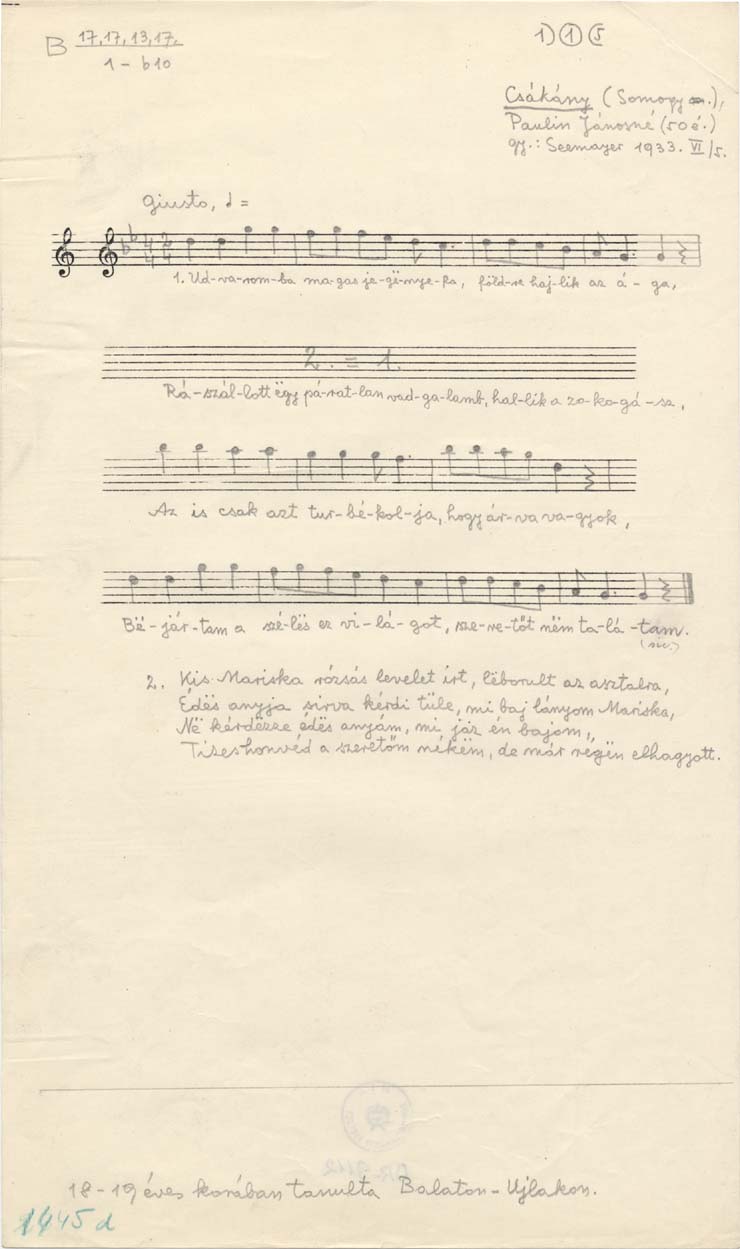 B 17, 17, 13, 17.
1 – b10
1) ① (5
Csákány (Somogy m.),
Paulin Jánosné (50 é.)
gy.: Seemayer 1933. VI/5.
Giusto, ♩ =
1. Ud-va-rom-ba ma-gas je-gë-nye-fa, föld-re haj-lik az á-ga,
2. = 1.
Rá-szál-lott ëgy pá-rat-lan vad-ga-lamb, hal-lik a zo-ko-gá-sa,
Az is csak azt tur-bé-kol-ja, hogy ár-va va-gyok,
Bë-jár-tam a szé-lës ez vi-lá-got, sze-re-tőt nëm ta-lá-tam.
(sic.)
2. Kis Mariska rózsás levelet irt, lëborult az asztalra,
Édës anyja sirva kérdi tüle, mi baj lányom Mariska,
Në kérdëzze édës anyám, mi jaz én bajom,
Tizeshonvéd a szeretőm nékëm, de már régën elhagyott.
18-19 éves korában tanulta Balaton-Ujlakon.
1445 d